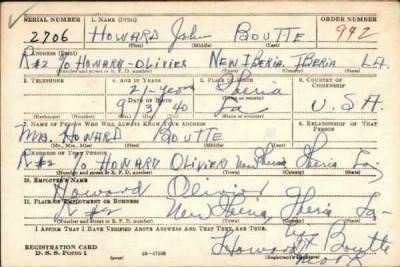 SERIAL NUMBER 1. NAME (Print) ORDER NUMBER
2706 HOWARD John BOUTTE 942
(First) (Middle) (Last)
2. ADDRESS (Print)
R#2 % HOWARD-OLIVIER NEW IBERIA IBERIA LA.
(Number and street or R. F. D. number) (Town) (County) (State)
3. TELEPHONE 4. AGE IN YEARS 5. PLACE OF BIRTH 6. COUNTRY OF CITIZENSHIP
21-years Iberia
DATE OF BIRTH (Town or county)
9/3/40 La U.S.A.
(Exchange) (Number) (Mo.) (Day) (Yr.) (State or country)
7. NAME OF PERSON WHO WILL ALWAYS KNOW YOUR ADDRESS 8. RELATIONSHIP OF THAT PERSON
MR. HOWARD BOUTTE
(Mr., Mrs., Miss) (First) (Middle) (Last)
9. ADDRESS OF THAT PERSON
R#2 % HOWARD OLIVIER New Iberia, Iberia La.
(Number and street or R. F. D. number) (Town) (County) (State)
10. EMPLOYER'S NAME
Howard Olivier
11. PLACE OF EMPLOYMENT OR BUSINESS
R #2 New Iberia, Iberia La-
(Number and street or R. F. D. number) (Town) (County) (State)
I AFFIRM THAT I HAVE VERIFIED ABOVE ANSWERS AND THAT THEY ARE TRUE.
by
REGISTRATION CARD
D. S. S. Form 1 16-17105 Howard Boutte